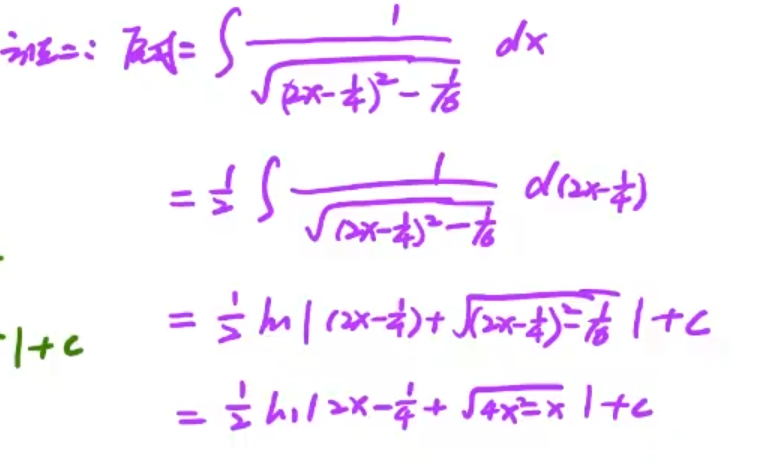 方法二：原式=∫ 1/√((2x-1/4)²-1/16) dx
=1/2 ∫ 1/√((2x-1/4)²-1/16) d(2x-1/4)
=1/2 ln|(2x-1/4)+√((2x-1/4)²-1/16)|+c
|+c
=1/2 ln|2x-1/4+√(4x²-x)|+c